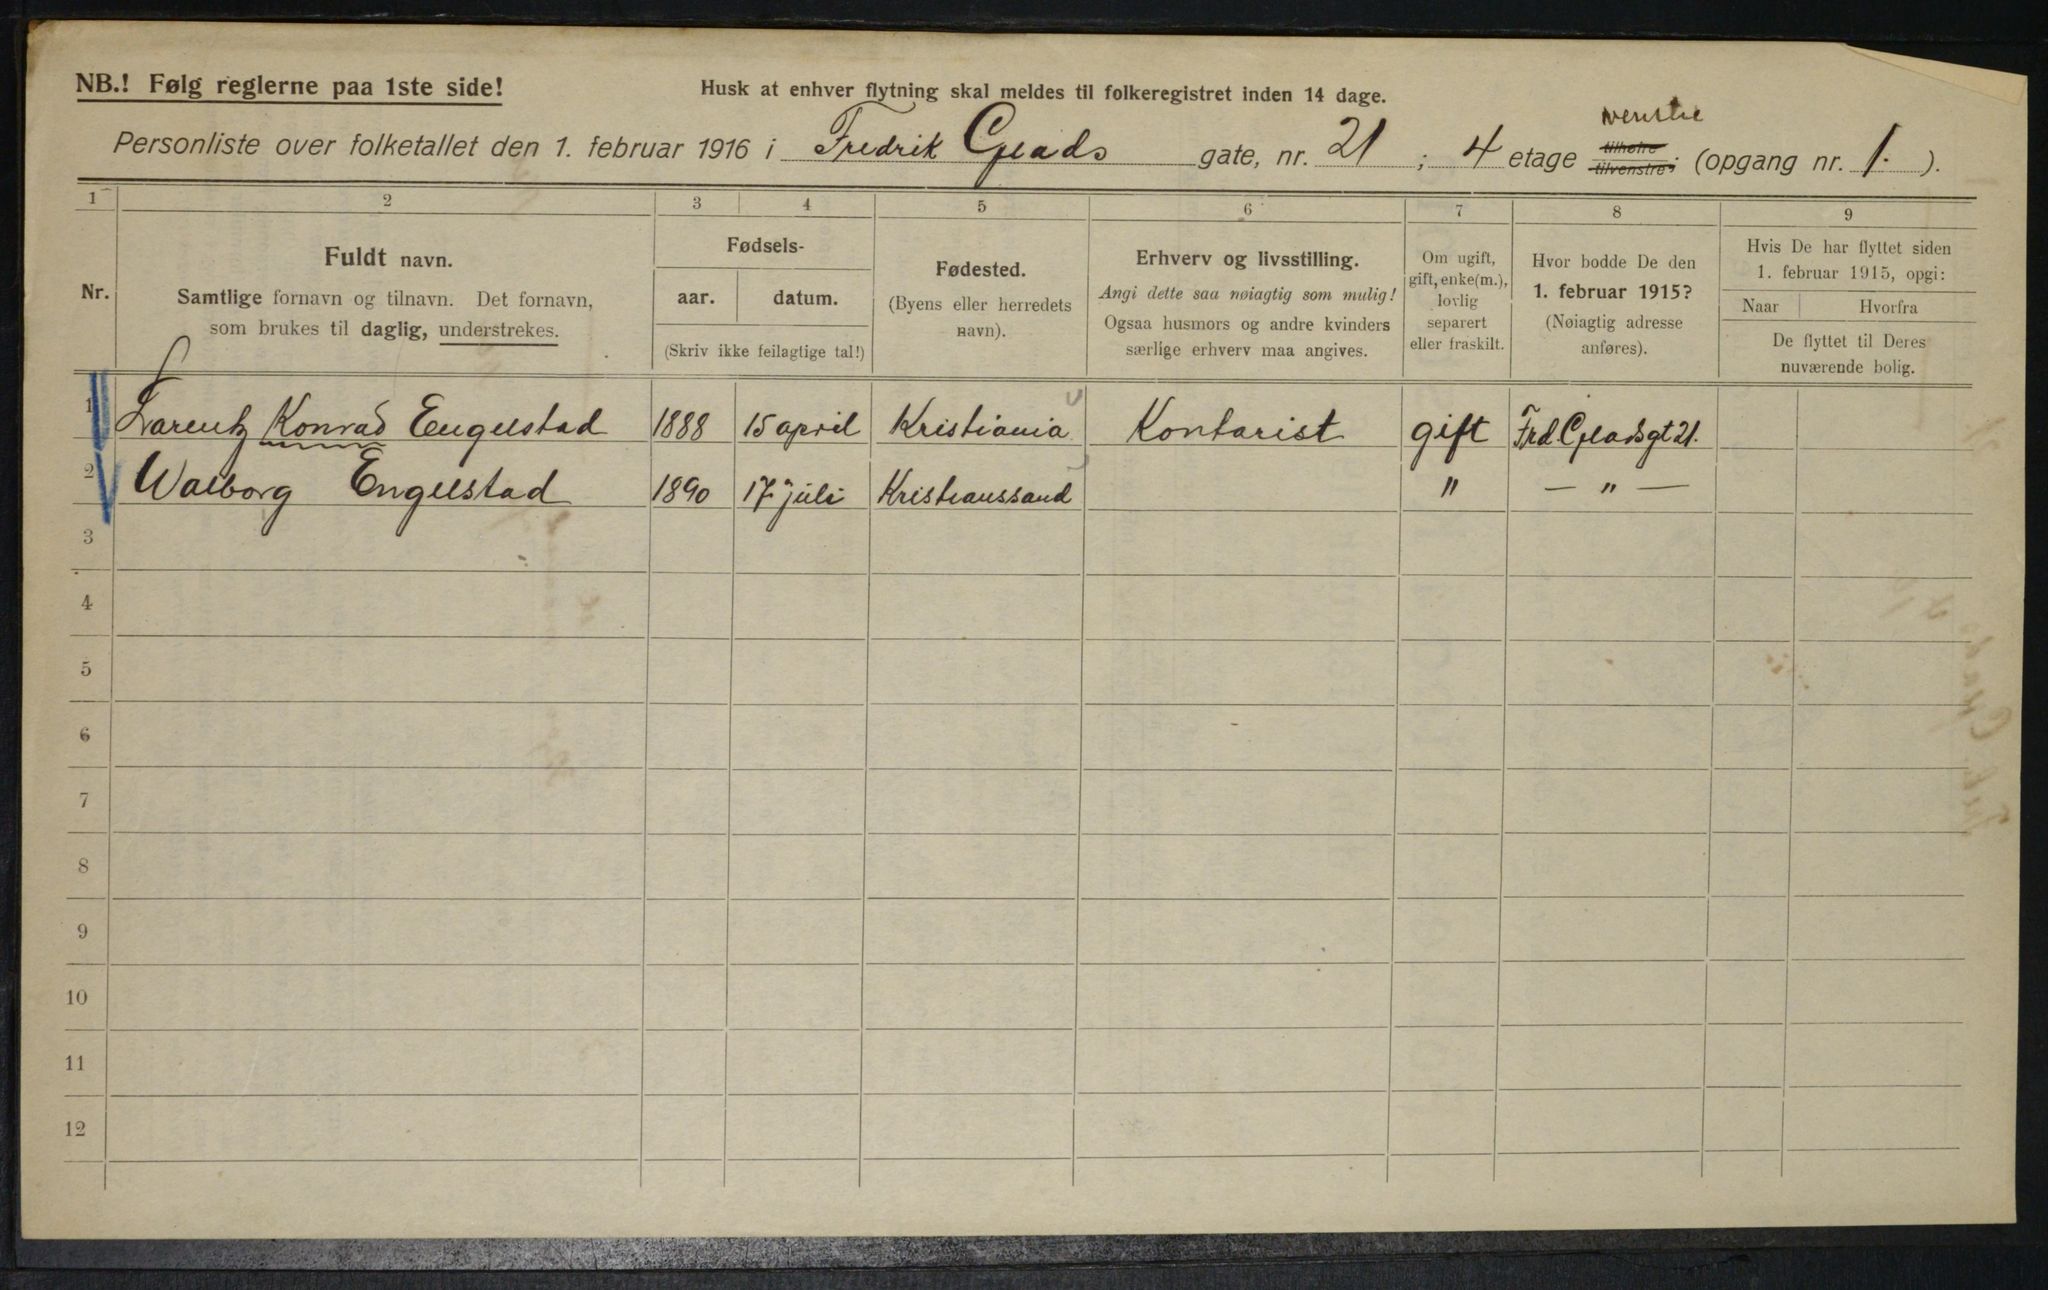 NB.! Følg reglerne paa 1ste side!
Husk at enhver flytning skal meldes til folkeregistret inden 14 dage.
venstre
Personliste over folketallet den 1. februar 1916 i Fredrik Gjeads gate, nr. 21; 4 etage tilhøire tilvenstre; (opgang nr. 1.).
1 2 3 4 5 6 7 8 9
Nr.
Fuldt navn.
Samtlige fornavn og tilnavn. Det fornavn,
som brukes til daglig, understrekes.
Fødsels-
aar. datum.
(Skriv ikke feilagtige tal!)
Fødested.
(Byens eller herredets
navn).
Erhverv og livsstilling.
Angi dette saa nøiagtig som mulig!
Ogsaa husmors og andre kvinders
særlige erhverv maa angives.
Om ugift,
gift, enke(m.),
lovlig
separert
eller fraskilt.
Hvor bodde De den
1. februar 1915?
(Nøiagtig adresse
anføres).
Hvis De har flyttet siden
1. februar 1915, opgi:
Naar Hvorfra
De flyttet til Deres
nuværende bolig.
1 Larentz Konrad Engelstad 1888 15 april Kristiania Kontorist gift Frd. Gjeadsgt 21.
2 Walborg Engelstad 1890 17 juli Kristianssand " — " —
3
4
5
6
7
8
9
10
11
12